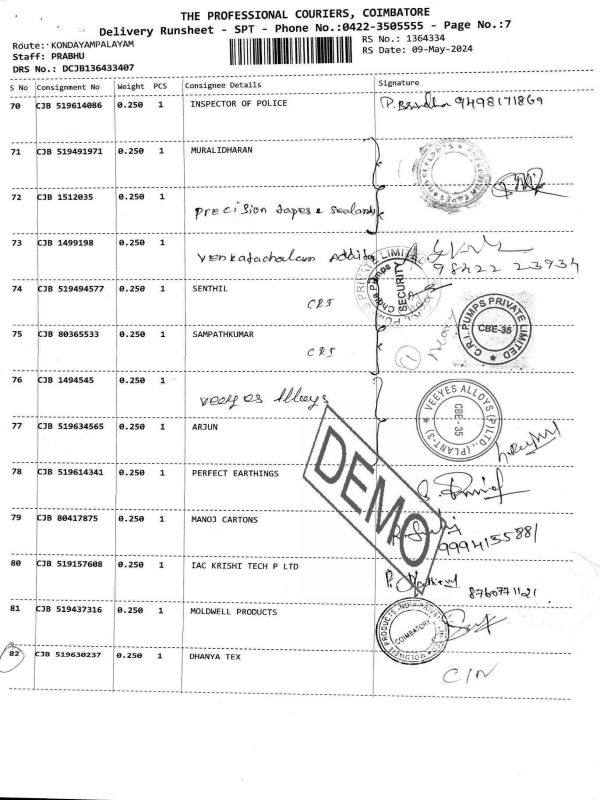 THE PROFESSIONAL COURIERS, COIMBATORE
Delivery Runsheet - SPT - Phone No.:0422-3505555 - Page No.:7
Route: KONDAYAMPALAYAM
RS No.: 1364334
Staff: PRABHU
RS Date: 09-May-2024
DRS No.: DCJB136433407
S No Consignment No Weight PCS Consignee Details Signature
70 CJB 519614086 0.250 1 INSPECTOR OF POLICE 9498171869
71 CJB 519491971 0.250 1 MURALIDHARAN
72 CJB 1512035 0.250 1 Precision tapes & Sealants
73 CJB 1499198 0.250 1 Venkatachalam Additi
98422 23934
74 CJB 519494577 0.250 1 SENTHIL
CRI
SECURITY
75 CJB 80365533 0.250 1 SAMPATHKUMAR
CRI
C.R.I. PUMPS PRIVATE LIMITED
CBE-35
76 CJB 1494545 0.250 1 Veeyes Alloys
VEEYES ALLOYS (P) LTD., (PLANT-3)
CBE-35
77 CJB 519634565 0.250 1 ARJUN
DEMO
78 CJB 519614341 0.250 1 PERFECT EARTHINGS
79 CJB 80417875 0.250 1 MANOJ CARTONS
9994135881
80 CJB 519157608 0.250 1 IAC KRISHI TECH P LTD
8760771121
81 CJB 519437316 0.250 1 MOLDWELL PRODUCTS
MOLDWELL PRODUCTS INDIA PRIVATE LIMITED
COIMBATORE
82 CJB 519630237 0.250 1 DHANYA TEX
C/N